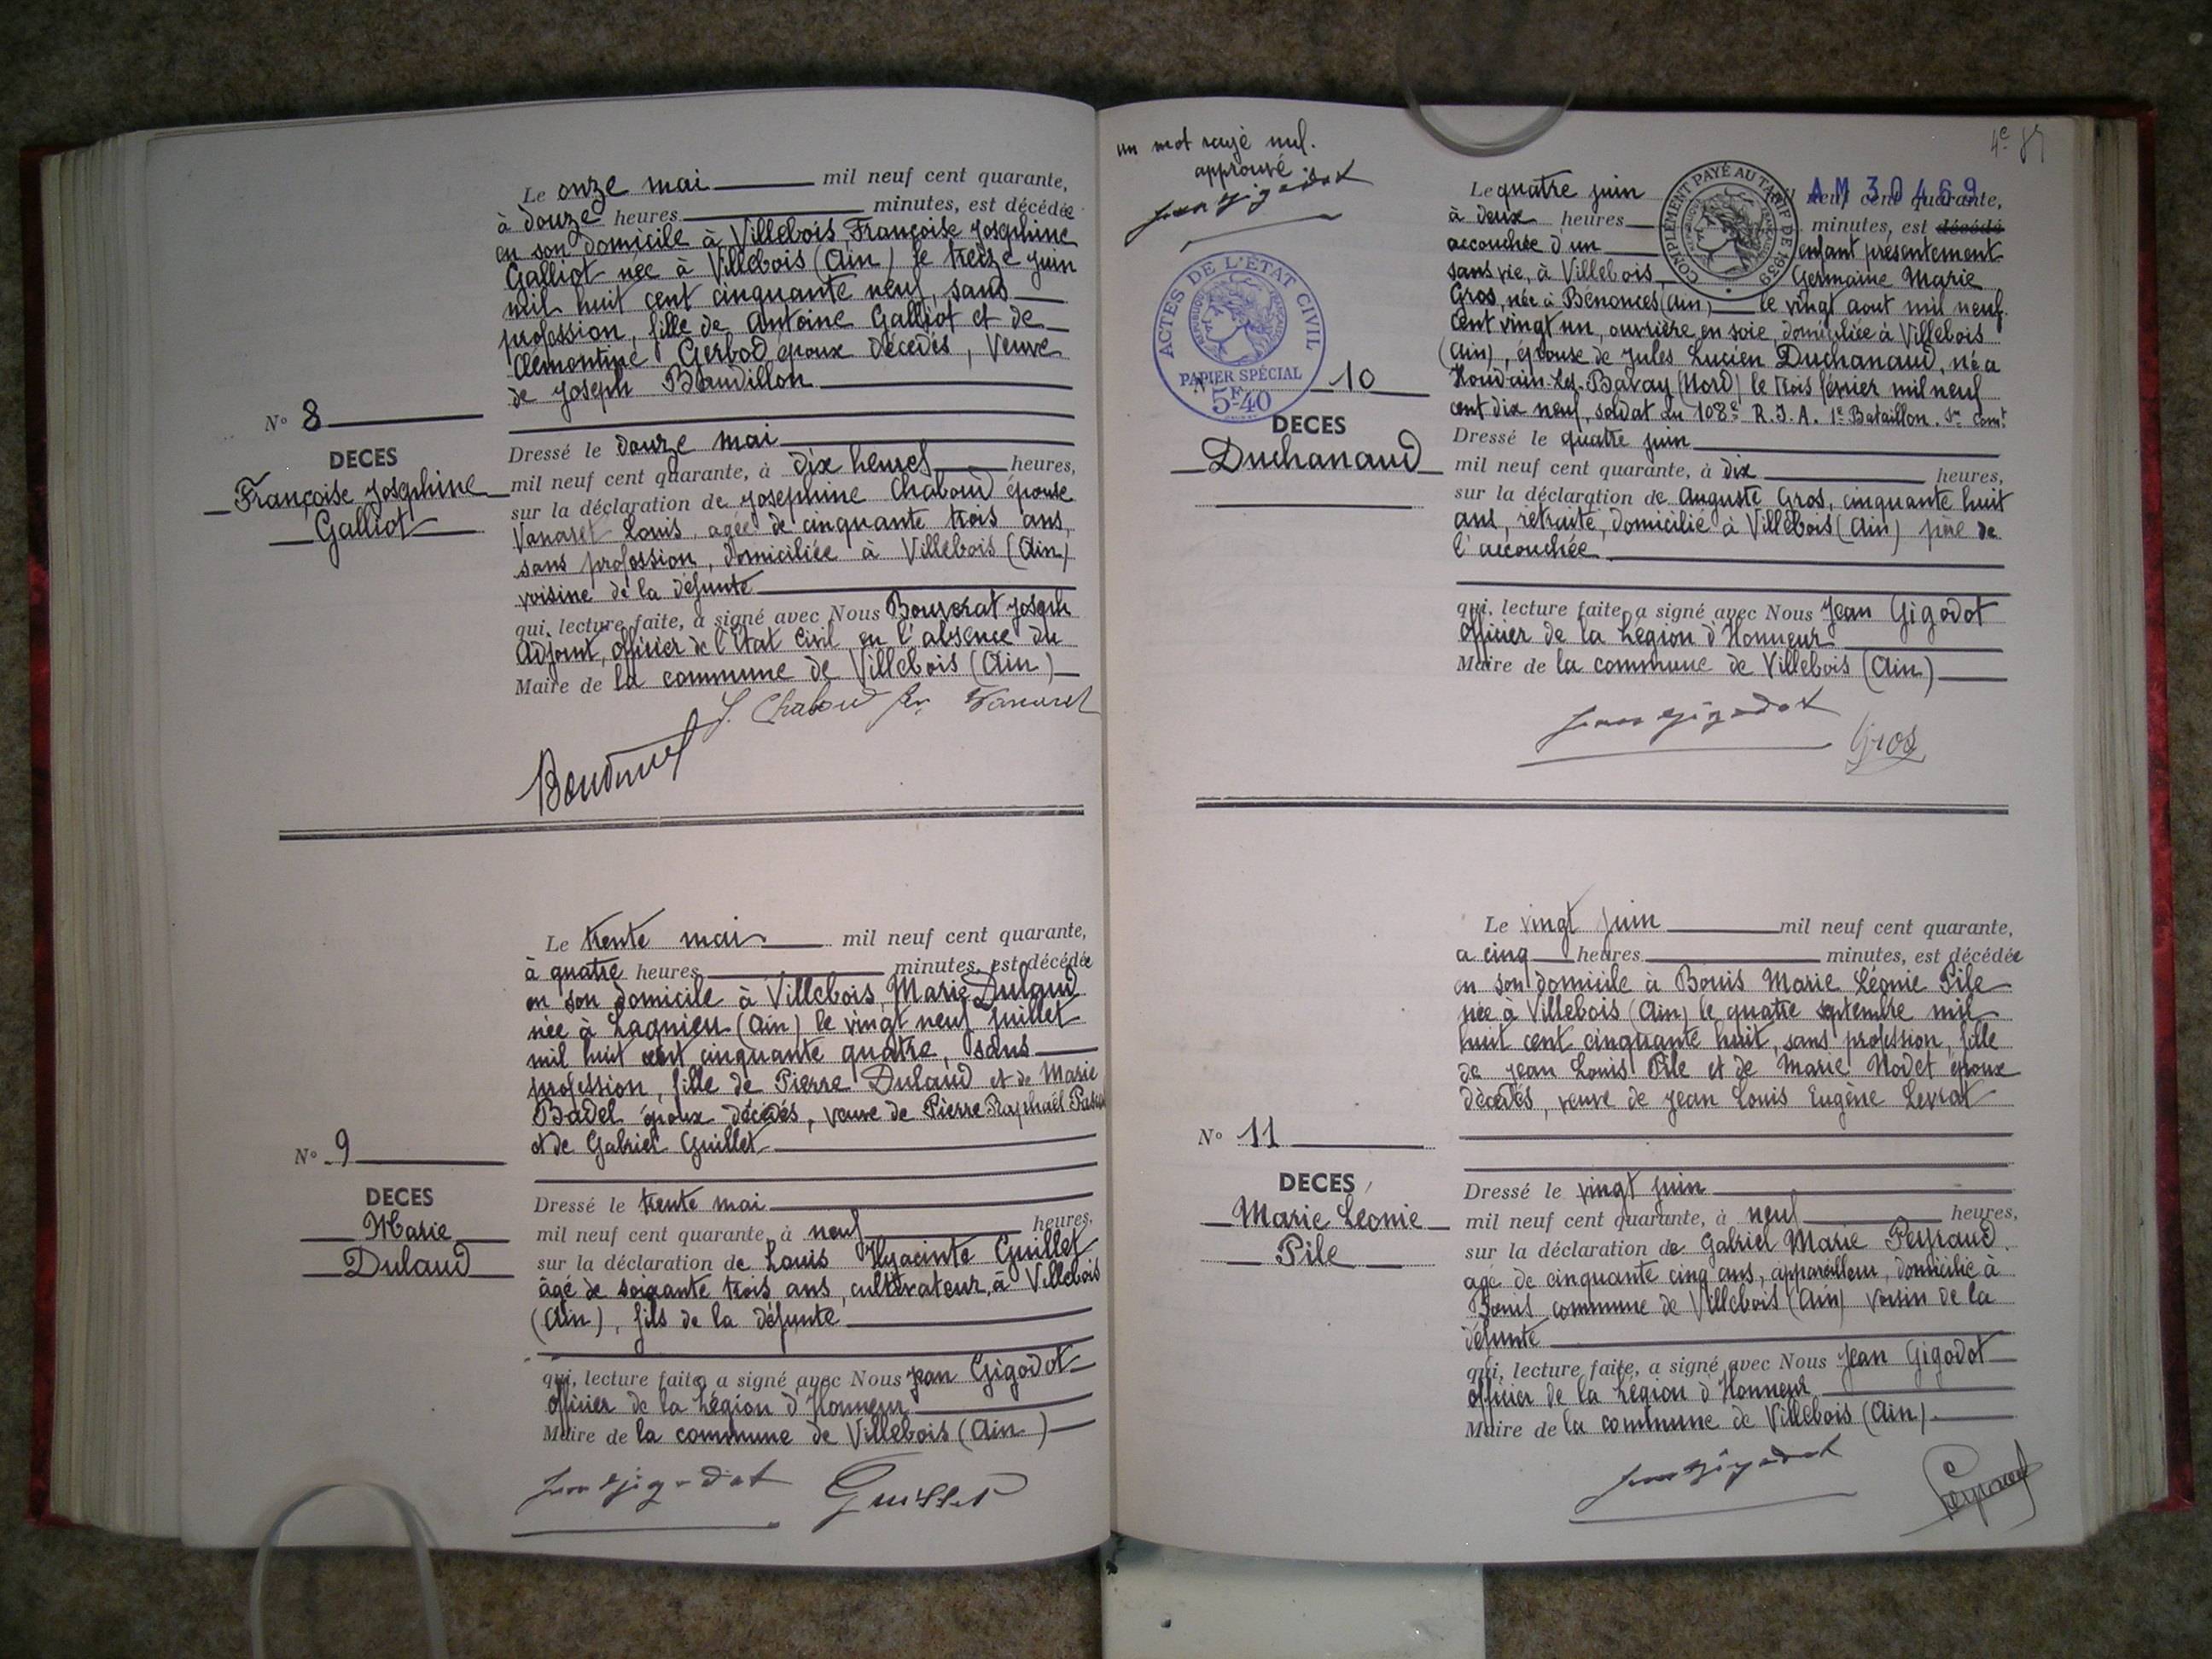 Le onze mai mil neuf cent quarante,
à douze heures minutes, est décédée
en son domicile à Villebois, Françoise Josephine
Galliot née à Villebois (Ain) le treize juin
mil huit cent cinquante neuf, sans
profession, fille de Antoine Galliot et de
Clémontine Gerbod, époux décédés, Veuve
de Joseph Baudillon
N° 8
DECES
Françoise Josephine
Galliot
Dressé le douze mai
mil neuf cent quarante, à dix heures heures,
sur la déclaration de Josephine Chaboud épouse
Vanaret Louis, agée de cinquante trois ans,
sans profession, domiciliée à Villebois (Ain)
voisine de la défunte
qui, lecture faite, a signé avec Nous Joseph
Adjoint, officier de l'Etat Civil en l'absence du
Maire de la commune de Villebois (Ain)
J. Chaboud Vanaret
Le trente mai mil neuf cent quarante,
à quatre heures minutes, est décédée
en son domicile à Villebois, Marie Dulaud
née à Lagnieu (Ain) le vingt neuf juillet
mil huit cent cinquante quatre, sans
profession, fille de Pierre Dulaud et de Marie
Badel époux décédés, veuve de Pierre Raphaël
et de Gabriel Guillet
N° 9
DECES
Marie
Dulaud
Dressé le trente mai
mil neuf cent quarante, à neuf heures,
sur la déclaration de Louis Hyacinte Guillet
âgé de soixante trois ans, cultivateur, à Villebois
(Ain), fils de la défunte
qui, lecture faite, a signé avec Nous Jean Gigodot
officier de la Légion d'Honneur
Maire de la commune de Villebois (Ain)
Jean Gigodot Guillet
4e
un mot rayé nul.
approuvé
Jean Gigodot
ACTES DE L'ÉTAT CIVIL
PAPIER SPÉCIAL
5F-40
COMPLÉMENT PAYÉ AU TARIF DE 1939
AM 30469
Le quatre juin mil neuf cent quarante,
à deux heures minutes, est décédé
accouchée d'un enfant présentement
sans vie, à Villebois, Germaine Marie
Gros, née à Bénonces (Ain) le vingt aout mil neuf
cent vingt un, ouvrière en soie, domiciliée à Villebois
(Ain), épouse de Jules Lucien Duchanaud, né à
Houdain-lez-Bavay (Nord) le trois février mil neuf
cent dix neuf, soldat au 108e R.I.A. 1e Bataillon.
N° 10
DECES
Duchanaud
Dressé le quatre juin
mil neuf cent quarante, à dix heures,
sur la déclaration de Auguste Gros, cinquante huit
ans, retraité, domicilié à Villebois (Ain) père de
l'accouchée
qui, lecture faite, a signé avec Nous Jean Gigodot
officier de la Légion d'Honneur
Maire de la commune de Villebois (Ain)
Jean Gigodot Gros
Le vingt juin mil neuf cent quarante,
a cinq heures minutes, est décédée
en son domicile à Bouis Marie Léonie Pile
née à Villebois (Ain) le quatre septembre mil
huit cent cinquante huit, sans profession, fille
de Jean Louis Pile et de Marie Nodet époux
décédés, veuve de Jean Louis Eugène Levrat
N° 11
DECES
Marie Leonie
Pile
Dressé le vingt juin
mil neuf cent quarante, à neuf heures,
sur la déclaration de Gabriel Marie Peyraud
agé de cinquante cinq ans, appareilleur, domicilié à
Bouis commune de Villebois (Ain) voisin de la
défunte
qui, lecture faite, a signé avec Nous Jean Gigodot
officier de la Légion d'Honneur
Maire de la commune de Villebois (Ain).
Jean Gigodot Peyraud